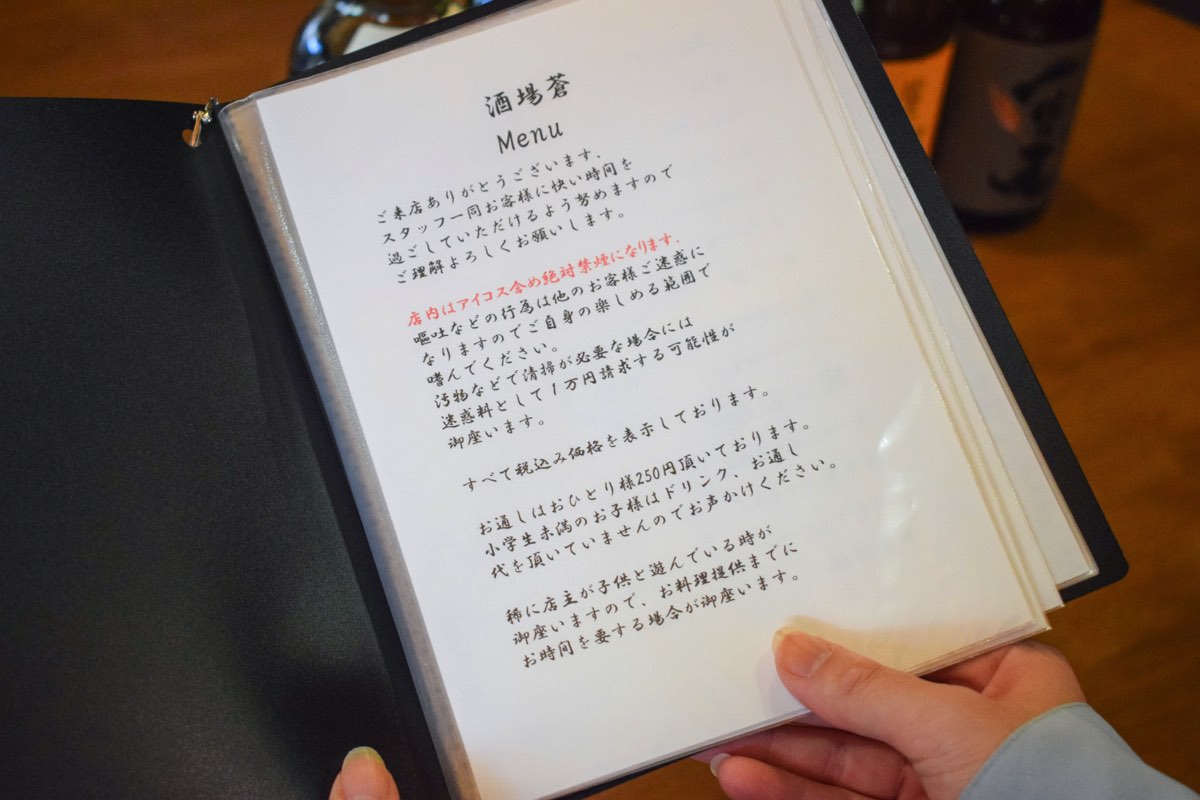 酒場蒼
Menu
ご来店ありがとうございます、
スタッフ一同お客様に快い時間を
過ごしていただけるよう努めますので
ご理解よろしくお願いします。
店内はアイコス含め絶対禁煙になります、
嘔吐などの行為は他のお客様ご迷惑に
なりますのでご自身の楽しめる範囲で
嗜んでください。
汚物などで清掃が必要な場合には
迷惑料として1万円請求する可能性が
御座います。
すべて税込み価格を表示しております。
お通しはおひとり様250円頂いております。
小学生未満のお子様はドリンク、お通し
代を頂いていませんのでお声かけください。
稀に店主が子供と遊んでいる時が
御座いますので、お料理提供までに
お時間を要する場合が御座います。